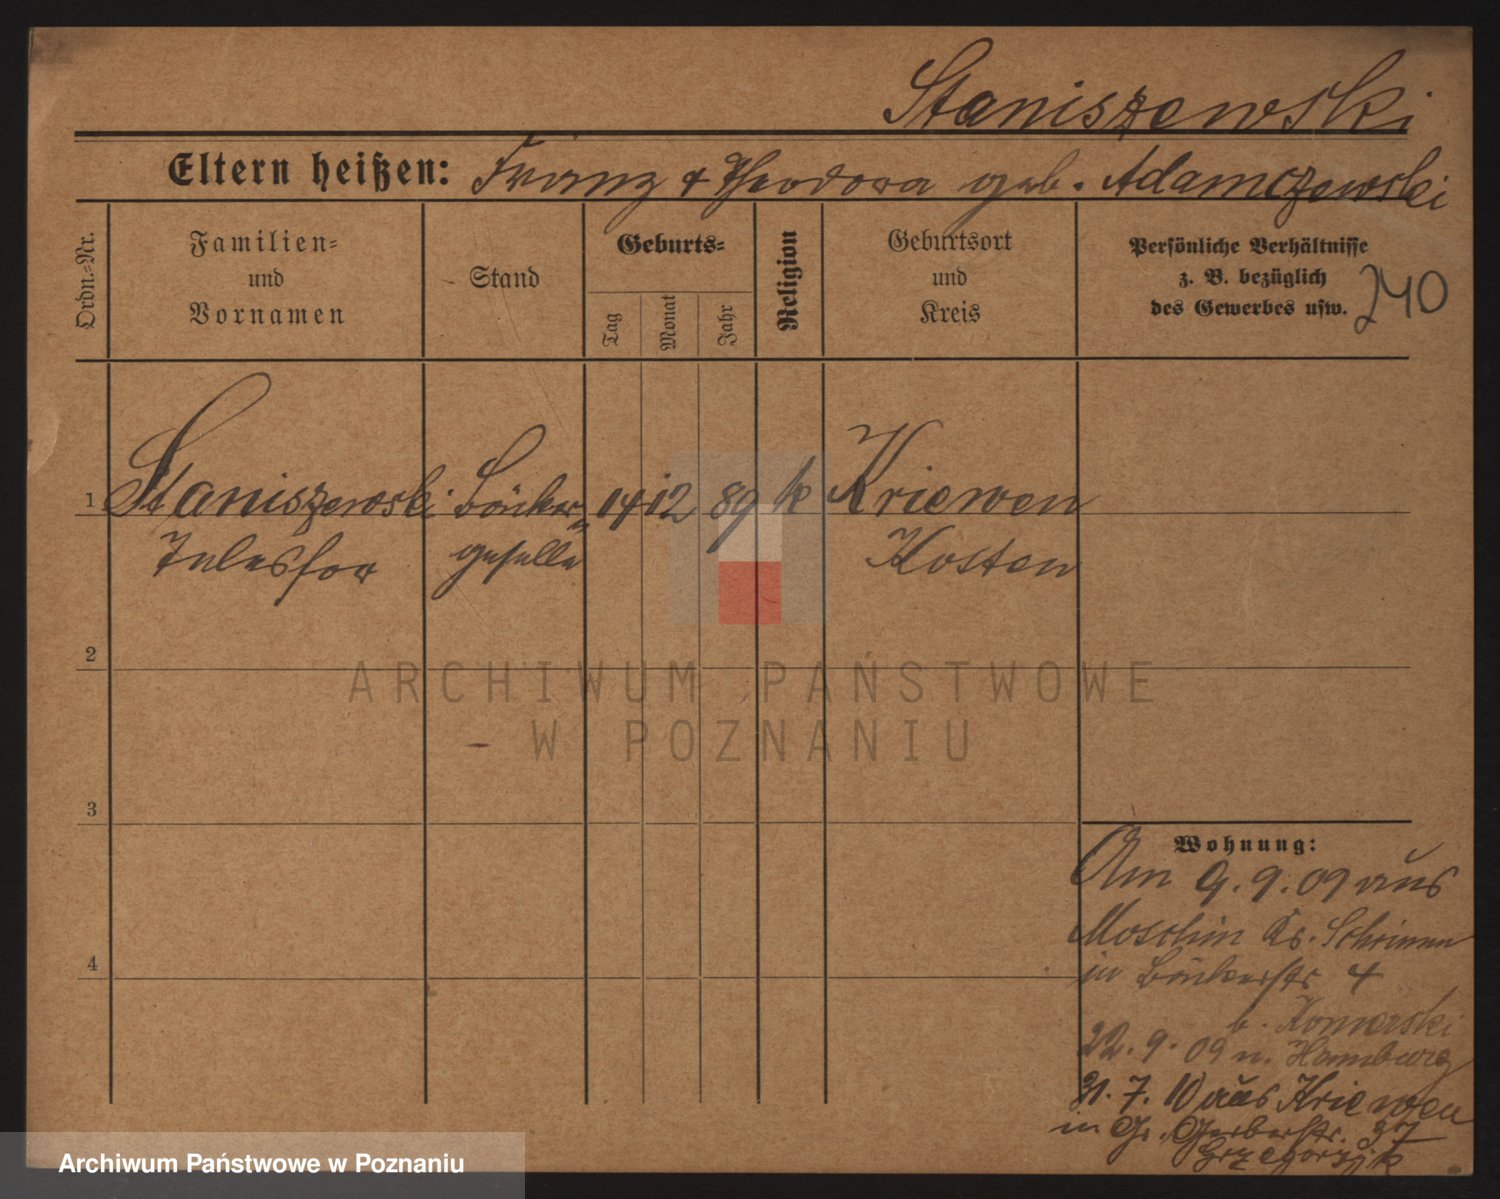 Staniszewski
Eltern heißen: Franz & Theodora geb. Adamczewski
Ordn.=Nr.
Familien=
und
Vornamen
Stand
Geburts=
Tag
Monat
Jahr
Religion
Geburtsort
und
Kreis
Persönliche Verhältnisse
z. B. bezüglich
des Gewerbes usw.
240
1 Staniszewski Bäcker= 14 12 89 k Kriewen
Telesfor geselle Kosten
2
3
4
Wohnung:
Am 9. 9. 09 aus
Moschin Ks. Schrimm
in Bäckerstr 4
b. Komorski
22. 9. 09 n. Hamburg
31. 7. 10 aus Kriewen
in Gr. Gerberstr. 37
ARCHIWUM PAŃSTWOWE
W POZNANIU
Archiwum Państwowe w Poznaniu